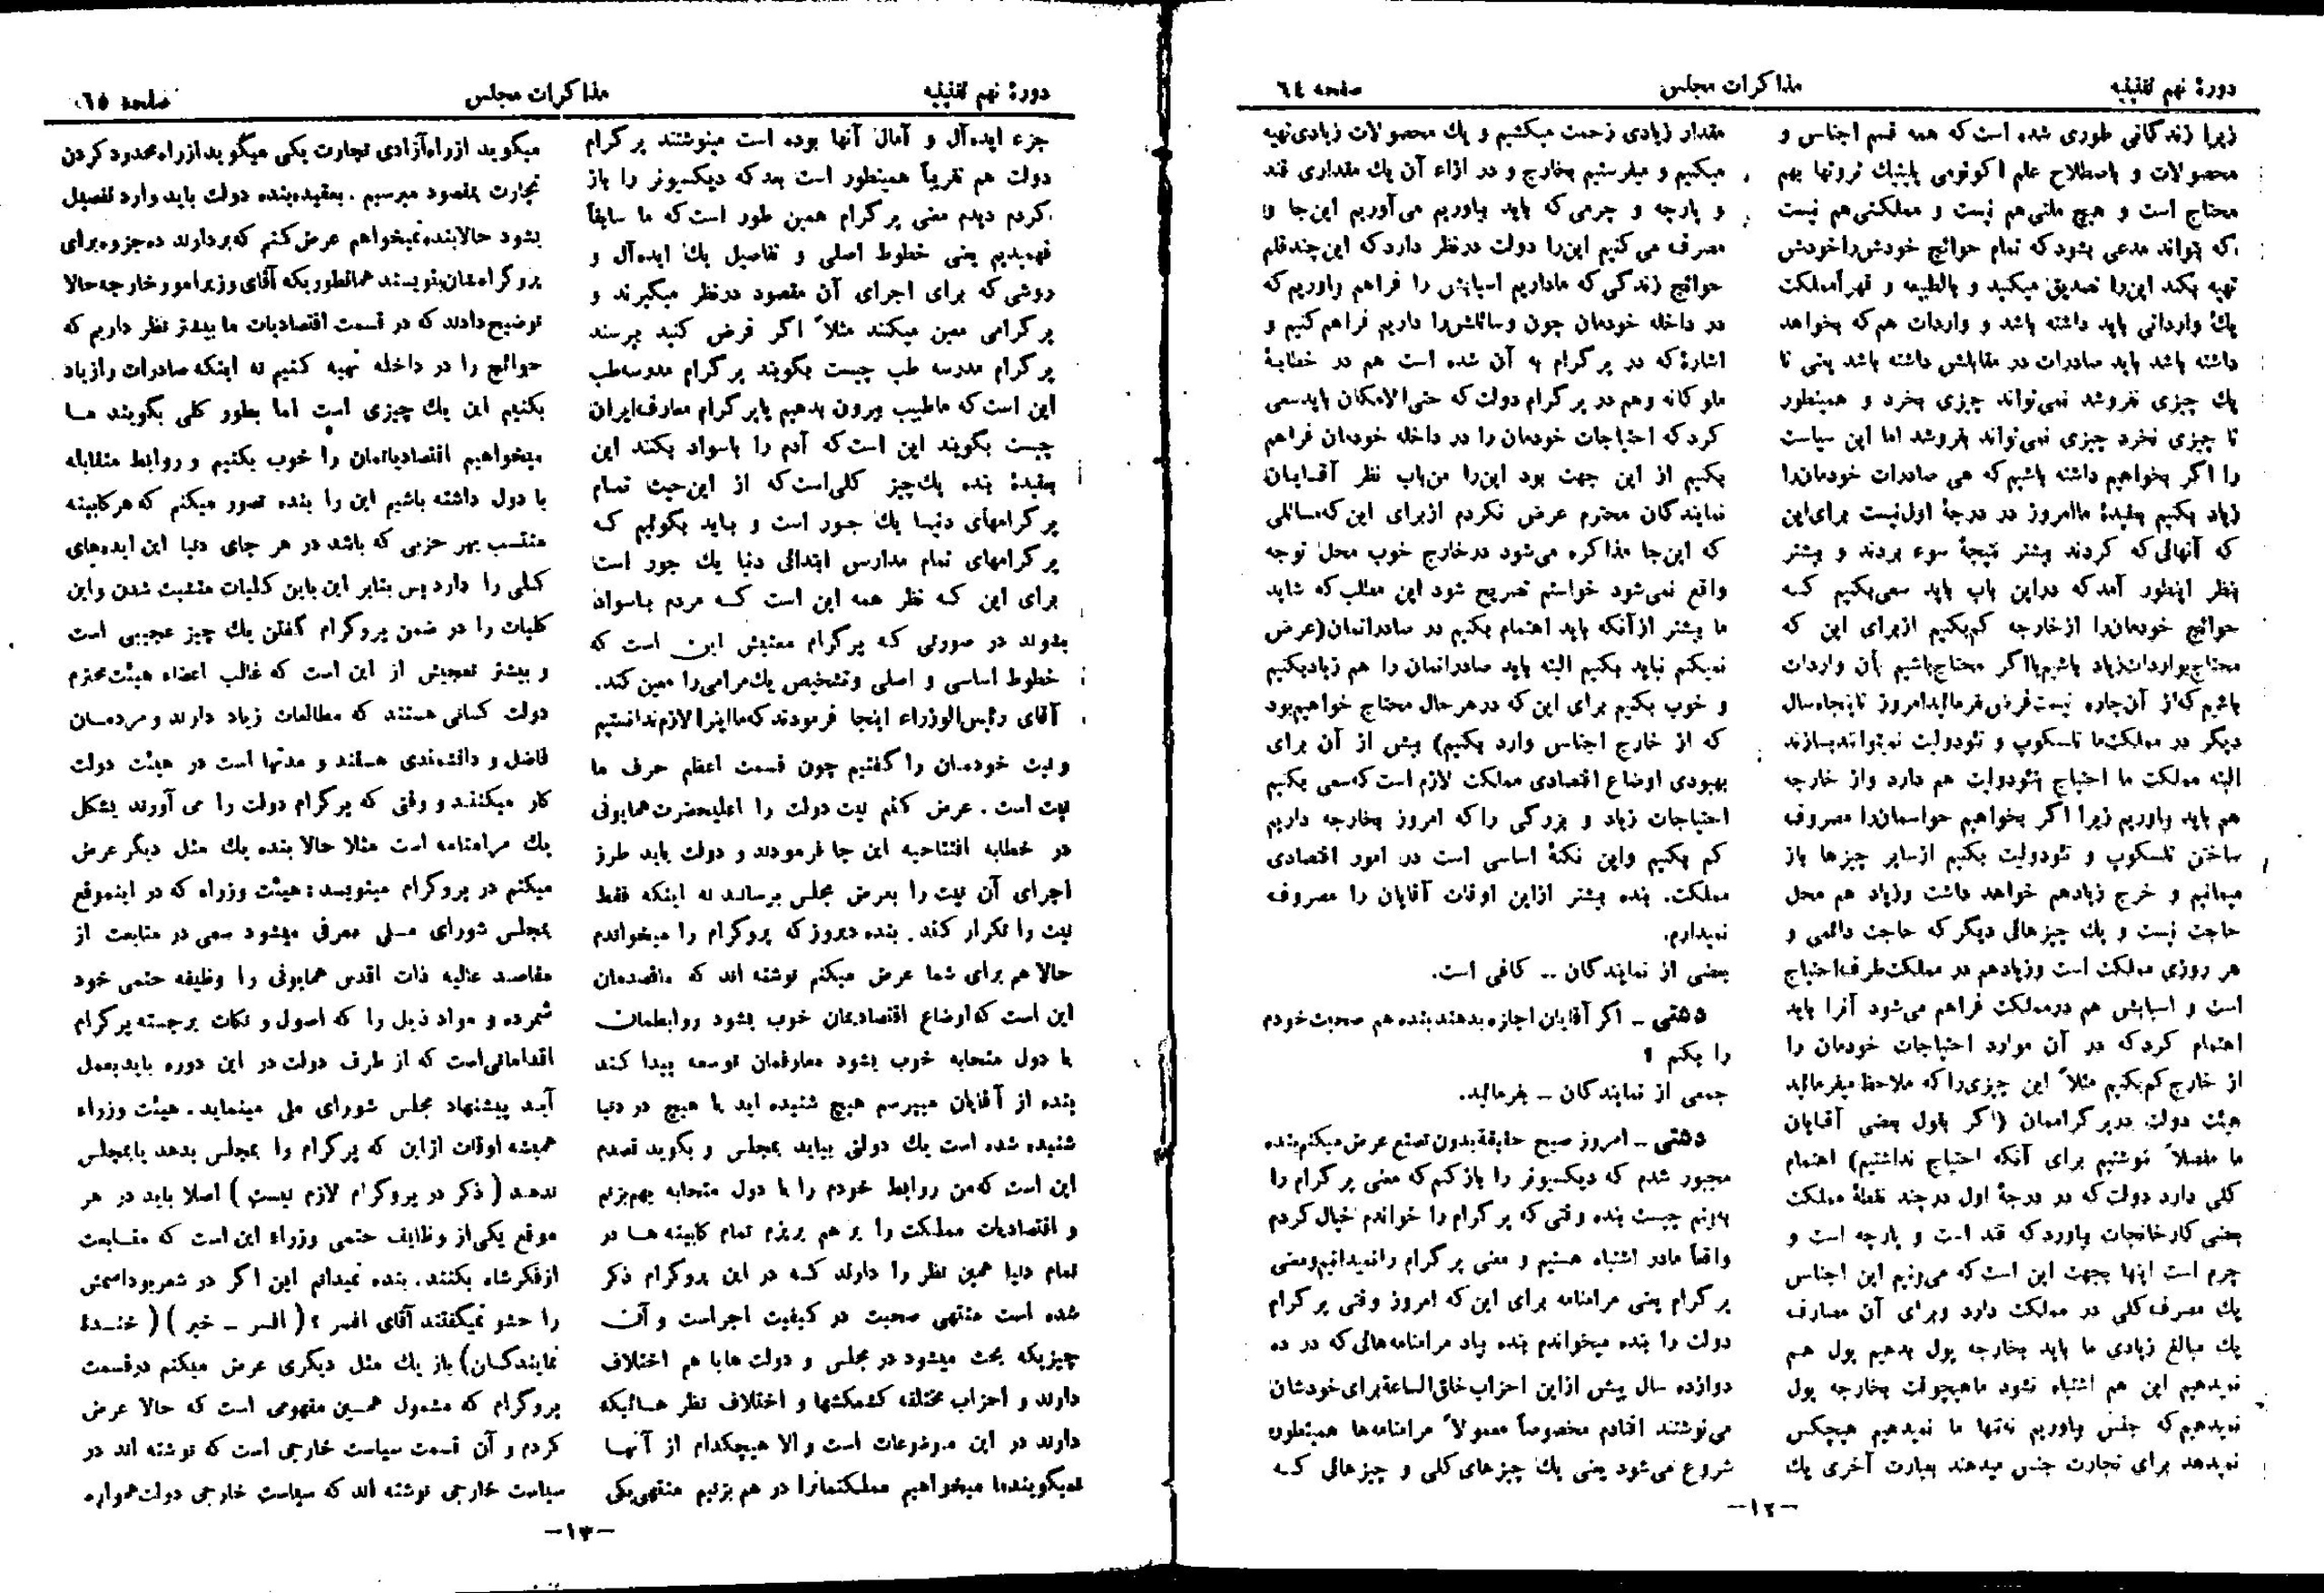 دورهٔ نهم تقنینیه
مذاکرات مجلس
صفحه ٦٤
زیرا زندگانی طوری شده است که همه قسم اجناس و
محصولات و باصطلاح علم اکونومی پلیتیك ثروتها بهم
محتاج است و هیچ ملتی هم نیست و مملکتی هم نیست
که بتواند مدعی بشود که تمام حوائج خودش را خودش
تهیه بکند این را تصدیق میکنید و بالطبیعه و قهراً مملکت
یك وارداتی باید داشته باشد و واردات هم که بخواهد
داشته باشد باید صادرات در مقابلش داشته باشد یعنی تا
یك چیزی نفروشد نمی‌تواند چیزی بخرد و همینطور
تا چیزی نخرد چیزی نمی‌تواند بفروشد اما این سیاست
را اگر بخواهیم داشته باشیم که هی صادرات خودمان را
زیاد بکنیم بعقیدهٔ ما امروز در درجهٔ اول نیست برای این
که آنهائی که کردند بیشتر نتیجهٔ سوء بردند و بیشتر
بنظر اینطور آمد که در این باب باید سعی بکنیم که
حوائج خودمان را از خارجه کم بکنیم از برای این که
محتاج بواردات زیاد باشیم یا اگر محتاج باشیم بآن واردات
باشیم که از آن چاره نیست فرض فرمائید امروز تا پنجاه سال
دیگر در مملکت ما تلسکوپ و تئودولیت نمیتوانند بسازند
البته مملکت ما احتیاج بتئودولیت هم دارد و از خارجه
هم باید بیاوریم زیرا اگر بخواهیم حواسمان را مصروف
ساختن تلسکوپ و تئودولیت بکنیم از سایر چیزها باز
میمانیم و خرج زیاد هم خواهد داشت و زیاد هم محل
حاجت نیست و یك چیزهائی دیگر که حاجت دائمی و
هر روزی مملکت است و زیاد هم در مملکت طرف احتیاج
است و اسبابش هم در مملکت فراهم می‌شود آنرا باید
اهتمام کرد که در آن موارد احتیاجات خودمان را
از خارج کم بکنیم مثلاً این چیزی را که ملاحظه میفرمائید
هیئت دولت در پرگرامان (اگر بقول بعضی آقایان
ما مفصلاً نوشتیم برای آنکه احتیاج نداشتیم) اهتمام
کلی دارد دولت که در درجهٔ اول در چند نقطهٔ مملکت
بعضی کارخانجات بیاورد که قند است و پارچه است و
چرم است اینها بجهت این است که می‌بینیم این اجناس
یك مصرف کلی در مملکت دارد و برای آن مصارف
یك مبالغ زیادی ما باید بخارجه پول بدهیم پول هم
نمیدهیم این هم اشتباه نشود ما هیچوقت بخارجه پول
نمیدهیم که جنس بیاوریم نه تنها ما نمیدهیم هیچکس
نمیدهد برای تجارت جنس میدهند بعبارت آخری یك
مقدار زیادی زحمت میکشیم و یك محصولات زیادی تهیه
میکنیم و میفرستیم بخارج و در ازاء آن یك مقداری قند
و پارچه و چرمی که باید بیاوریم می‌آوریم این‌جا و
مصرف می کنیم این را دولت در نظر دارد که این چند قلم
حوائج زندگی که ما داریم اسبابش را فراهم بیاوریم که
در داخله خودمان چون وسائلش را داریم فراهم کنیم و
اشارهٔ که در پرگرام به آن شده است هم در خطابهٔ
ملوکانه و هم در پرگرام دولت که حتی‌الامکان باید سعی
کرد که احتیاجات خودمان را در داخله خودمان فراهم
بکنیم از این جهت بود این را من باب نظر آقایان
نمایندگان محترم عرض نکردم از برای این که مسائلی
که این‌جا مذاکره می‌شود در خارج خوب محل توجه
واقع نمی‌شود خواستم تصریح شود این مطلب که شاید
ما بیشتر از آنکه باید اهتمام بکنیم در صادراتمان (عرض
نمیکنم نباید بکنیم البته باید صادراتمان را هم زیاد بکنیم
و خوب بکنیم برای این که در هر حال محتاج خواهیم بود
که از خارج اجناس وارد بکنیم) بیش از آن برای
بهبودی اوضاع اقتصادی مملکت لازم است که سعی بکنیم
احتیاجات زیاد و بزرگی را که امروز بخارجه داریم
کم بکنیم و این نکتهٔ اساسی است در امور اقتصادی
مملکت. بنده بیشتر از این اوقات آقایان را مصروف
نمیدارم.
بعضی از نمایندگان -- کافی است.
دشتی - اگر آقایان اجازه بدهند بنده هم صحبت خودم
را بکنم ؟
جمعی از نمایندگان - بفرمائید.
دشتی - امروز صبح حقیقة بدون تصنع عرض میکنم بنده
مجبور شدم که دیکسیونر را باز کنم که معنی پرگرام را
ببینم چیست بنده وقتی که پرگرام را خواندم خیال کردم
واقعاً ما در اشتباه هستیم و معنی پرگرام را نمیدانیم و معنی
پرگرام یعنی مرامنامه برای این که امروز وقتی پرگرام
دولت را بنده میخواندم بنده بیاد مرامنامه هائی که در ده
دوازده سال پیش از این احزاب خلق‌الساعة برای خودشان
می‌نوشتند افتادم مخصوصاً معمولاً مرامنامه‌ها همینطور
شروع می‌شود یعنی یك چیزهای کلی و چیزهائی که
-۱۲-
دورهٔ نهم تقنینیه
مذاکرات مجلس
صفحه ٦٥
جزء ایده‌آل و آمال آنها بوده است مینوشتند پرگرام
دولت هم تقریباً همینطور است بعد که دیکسیونر را باز
کردم دیدم معنی پرگرام همین طور است که ما سابقاً
فهمیدیم یعنی خطوط اصلی و تفاصیل یك ایده‌آل و
روشی که برای اجرای آن مقصود در نظر میگیرند و
پرگرامی معین میکنند مثلاً اگر فرض کنید پرسند
پرگرام مدرسه طب چیست بگویند پرگرام مدرسه طب
این است که ما طبیب بیرون بدهیم یا پرگرام معارف ایران
چیست بگویند این است که آدم را باسواد بکنند این
بعقیدهٔ بنده یك چیز کلی است که از این حیث تمام
پرگرامهای دنیا یك جور است و باید بگوئیم که
پرگرامهای تمام مدارس ابتدائی دنیا یك جور است
برای این که نظر همه این است که مردم باسواد
بشوند در صورتی که پرگرام معنیش این است که
خطوط اساسی و اصلی و تشخیص یك مرامی را معین کند.
آقای رئیس‌الوزراء اینجا فرمودند که ما اینرا لازم ندانستیم
و نیت خودمان را گفتیم چون قسمت اعظم حرف ما
نیت است. عرض کنم نیت دولت را اعلیحضرت همایونی
در خطابه افتتاحیه این جا فرمودند و دولت باید طرز
اجرای آن نیت را بعرض مجلس برساند نه اینکه فقط
نیت را تکرار کند. بنده دیروز که پروگرام را میخواندم
حالا هم برای شما عرض میکنم نوشته اند که ماقصدمان
این است که اوضاع اقتصادیمان خوب بشود روابطمان
با دول متحابه خوب بشود معارفمان توسعه پیدا کند
بنده از آقایان میپرسم هیچ شنیده اید یا هیچ در دنیا
شنیده شده است یك دولتی بیاید بمجلس و بگوید قصدم
این است که من روابط خودم را با دول متحابه بهم بزنم
و اقتصادیات مملکت را بر هم بریزم تمام کابینه ها در
تمام دنیا همین نظر را دارند که در این پروگرام ذکر
شده است منتهی صحبت در کیفیت اجراست و آن
چیزیکه بحث میشود در مجلس و دولت ها با هم اختلاف
دارند و احزاب مختلفه کشمکشها و اختلاف نظرهائیکه
دارند در این موضوعات است والا هیچکدام از آنها
نمیگویند ما میخواهیم مملکتمانرا در هم بزنیم منتهی یکی
میگوید از راه آزادی تجارت یکی میگوید از راه محدود کردن
تجارت بمقصود میرسیم. بعقیده بنده دولت باید وارد تفصیل
بشود حالا بنده نمیخواهم عرض کنم که بردارند ده جزوه برای
پروگرامشان بنویسند همانطوریکه آقای وزیر امور خارجه حالا
توضیح دادند که در قسمت اقتصادیات ما بیشتر نظر داریم که
حوائج را در داخله تهیه کنیم نه اینکه صادرات را زیاد
بکنیم این یك چیزی است اما بطور کلی بگویند ما
میخواهیم اقتصادیاتمان را خوب بکنیم و روابط متقابله
با دول داشته باشیم این را بنده تصور میکنم که هر کابینه
منتسب بهر حزبی که باشد در هر جای دنیا این ایده‌های
کلی را دارد پس بنابر این باین کلیات متشبث شدن و این
کلیات را در ضمن پروگرام گفتن یك چیز عجیبی است
و بیشتر تعجبش از این است که غالب اعضاء هیئت محترم
دولت کسانی هستند که مطالعات زیاد دارند و مردمان
فاضل و دانشمندی هستند و مدتها است در هیئت دولت
کار میکنند و وقتی که پرگرام دولت را می آورند بشکل
یك مرامنامه است مثلا حالا بنده یك مثل دیگر عرض
میکنم در پروگرام مینویسد: هیئت وزراء که در اینموقع
بمجلس شورای ملی معرفی میشود سعی در متابعت از
مقاصد عالیه ذات اقدس همایونی را وظیفه حتمی خود
شمرده و مواد ذیل را که اصول و نکات برجسته پرگرام
اقداماتی است که از طرف دولت در این دوره باید بعمل
آید پیشنهاد مجلس شورای ملی مینماید. هیئت وزراء
همیشه اوقات از این که پرگرام را بمجلس بدهد یا بمجلس
ندهد (ذکر در پروگرام لازم نیست) اصلا باید در هر
موقع یکی از وظایف حتمی وزراء این است که متابعت
از فکر شاه بکنند. بنده نمیدانم این اگر در شعر بود اسمش
را حشو نمیگفتند آقای افسر؟ (افسر - خیر) (خندهٔ
نمایندگان) باز یك مثل دیگری عرض میکنم در قسمت
پروگرام که مشمول همین مفهومی است که حالا عرض
کردم و آن قسمت سیاست خارجی است که نوشته اند در
سیاست خارجی نوشته اند که سیاست خارجی دولت همواره
-۱۳-